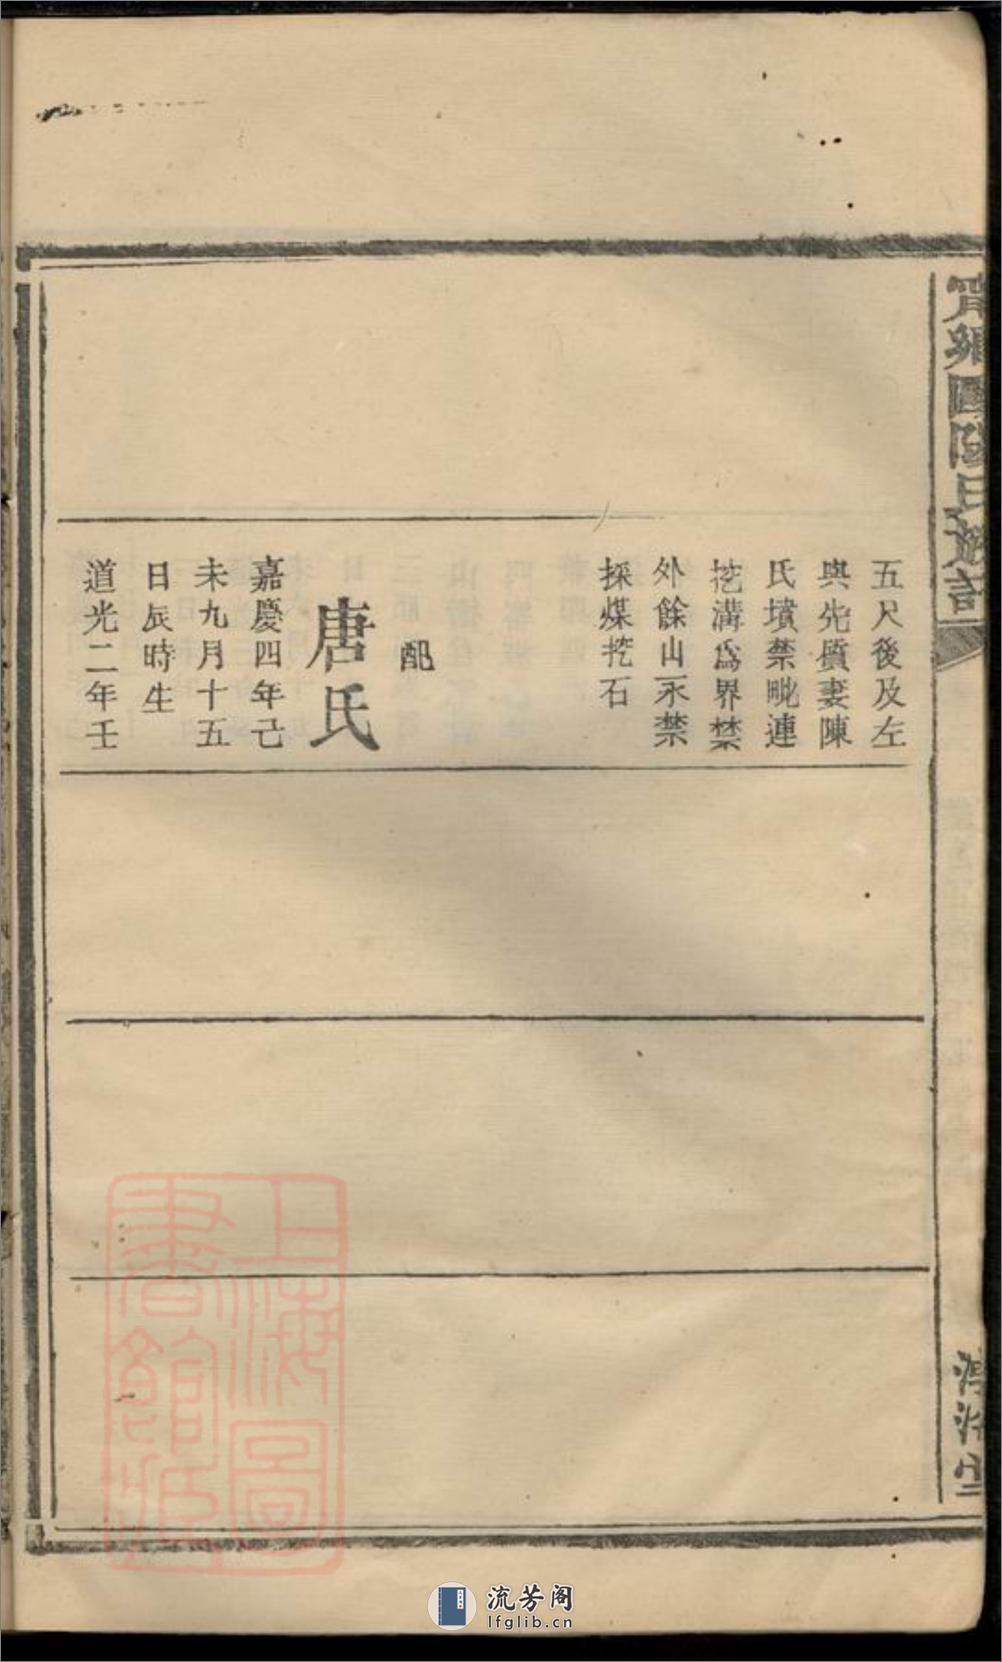 五尺後及左
與先質妻陳
氏墳禁毗連
挖溝爲界禁
外餘山永禁
採煤挖石
配
唐氏
嘉慶四年己
未九月十五
日辰時生
道光二年壬
上海圖
書館藏
流芳阁
lfglib.cn